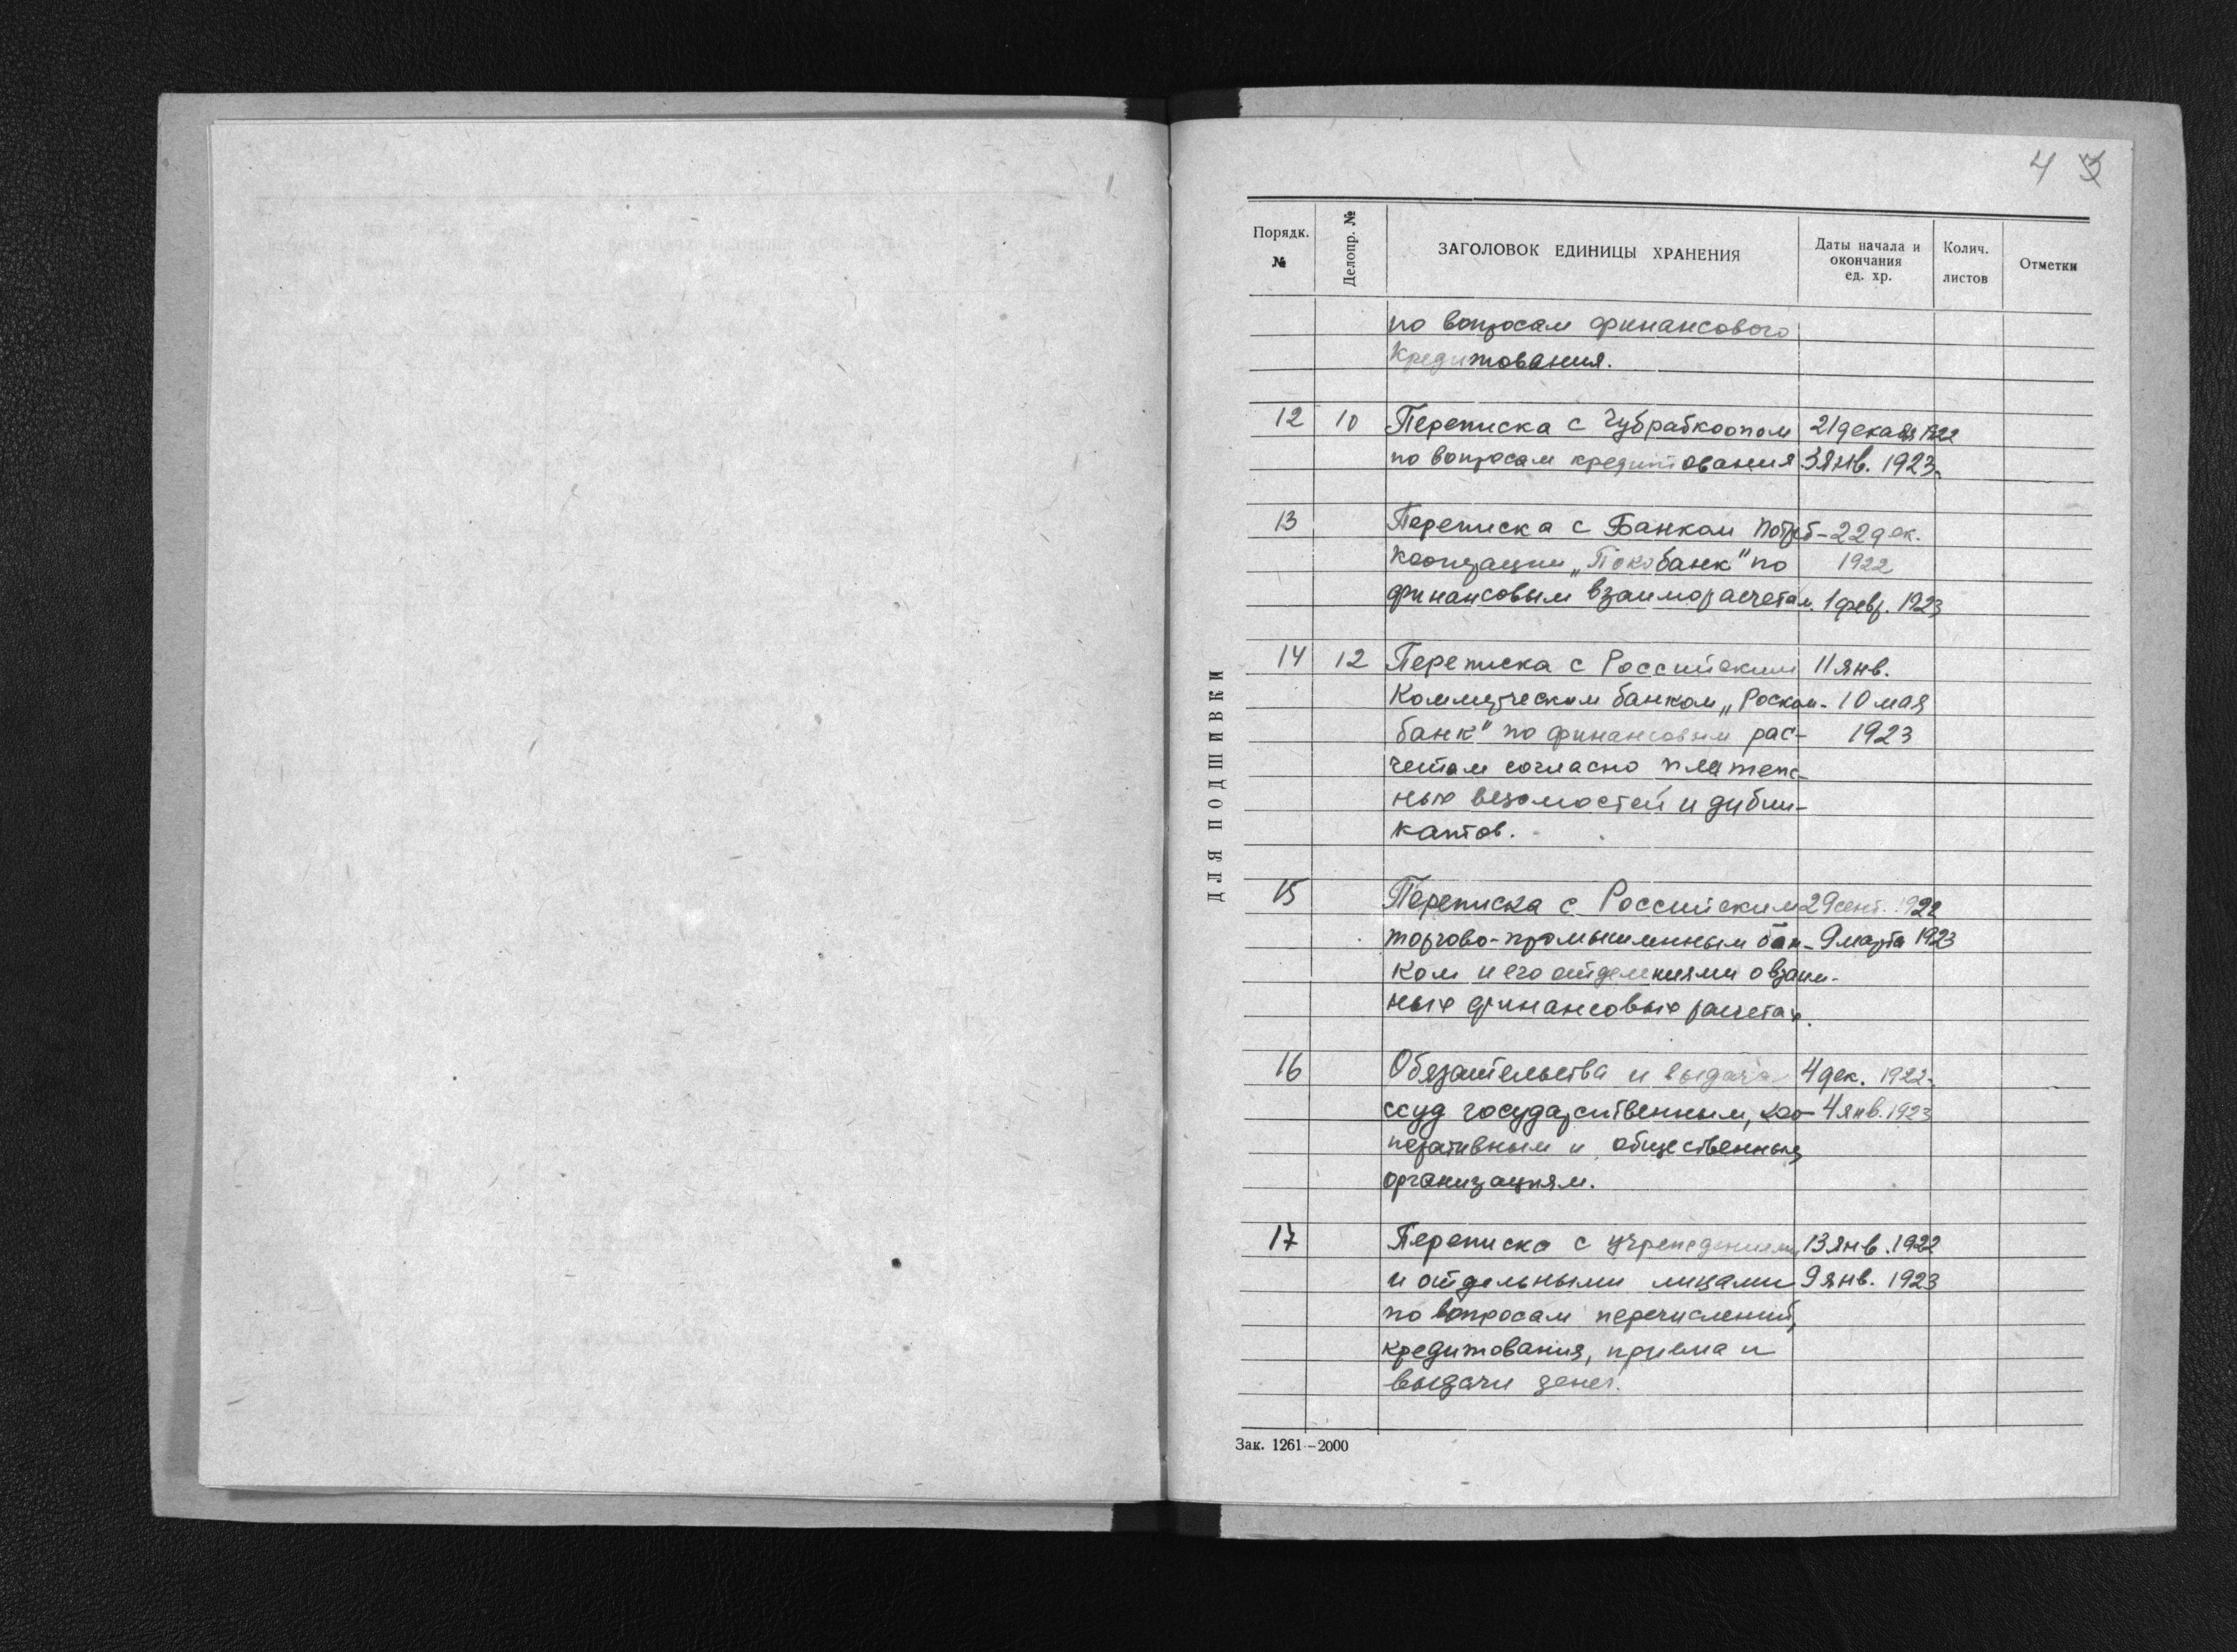 4 3
Порядк. №
Делопр. №
ЗАГОЛОВОК ЕДИНИЦЫ ХРАНЕНИЯ
Даты начала и окончания ед. хр.
Колич. листов
Отметки
по вопросам финансового
кредитования.
12 10 Переписка с Чубрабкоопом 21 декабря 1922
по вопросам кредитования 3 янв. 1923
13 Переписка с Банком потреб- 22 дек.
кооперации „Покобанк" по 1922
финансовым взаиморасчетам. 1 февр. 1923
14 12 Переписка с Российским 11 янв.
Коммерческим банком „Роском- 10 мая
банк" по финансовым рас- 1923
четам согласно платеж-
ных ведомостей и дубли-
катов.
15 Переписка с Российским 29 сент. 1922
торгово-промышленным бан- 9 марта 1923
ком и его отделениями о взаим-
ных финансовых расчетах.
16 Обязательства и выдача 4 дек. 1922-
ссуд государственным, коо- 4 янв. 1923
перативным и общественным
организациям.
17 Переписка с учреждениями 13 янв. 1922
и отдельными лицами 9 янв. 1923
по вопросам перечислений,
кредитования, приема и
выдачи денег.
ДЛЯ ПОДШИВКИ
Зак. 1261—2000